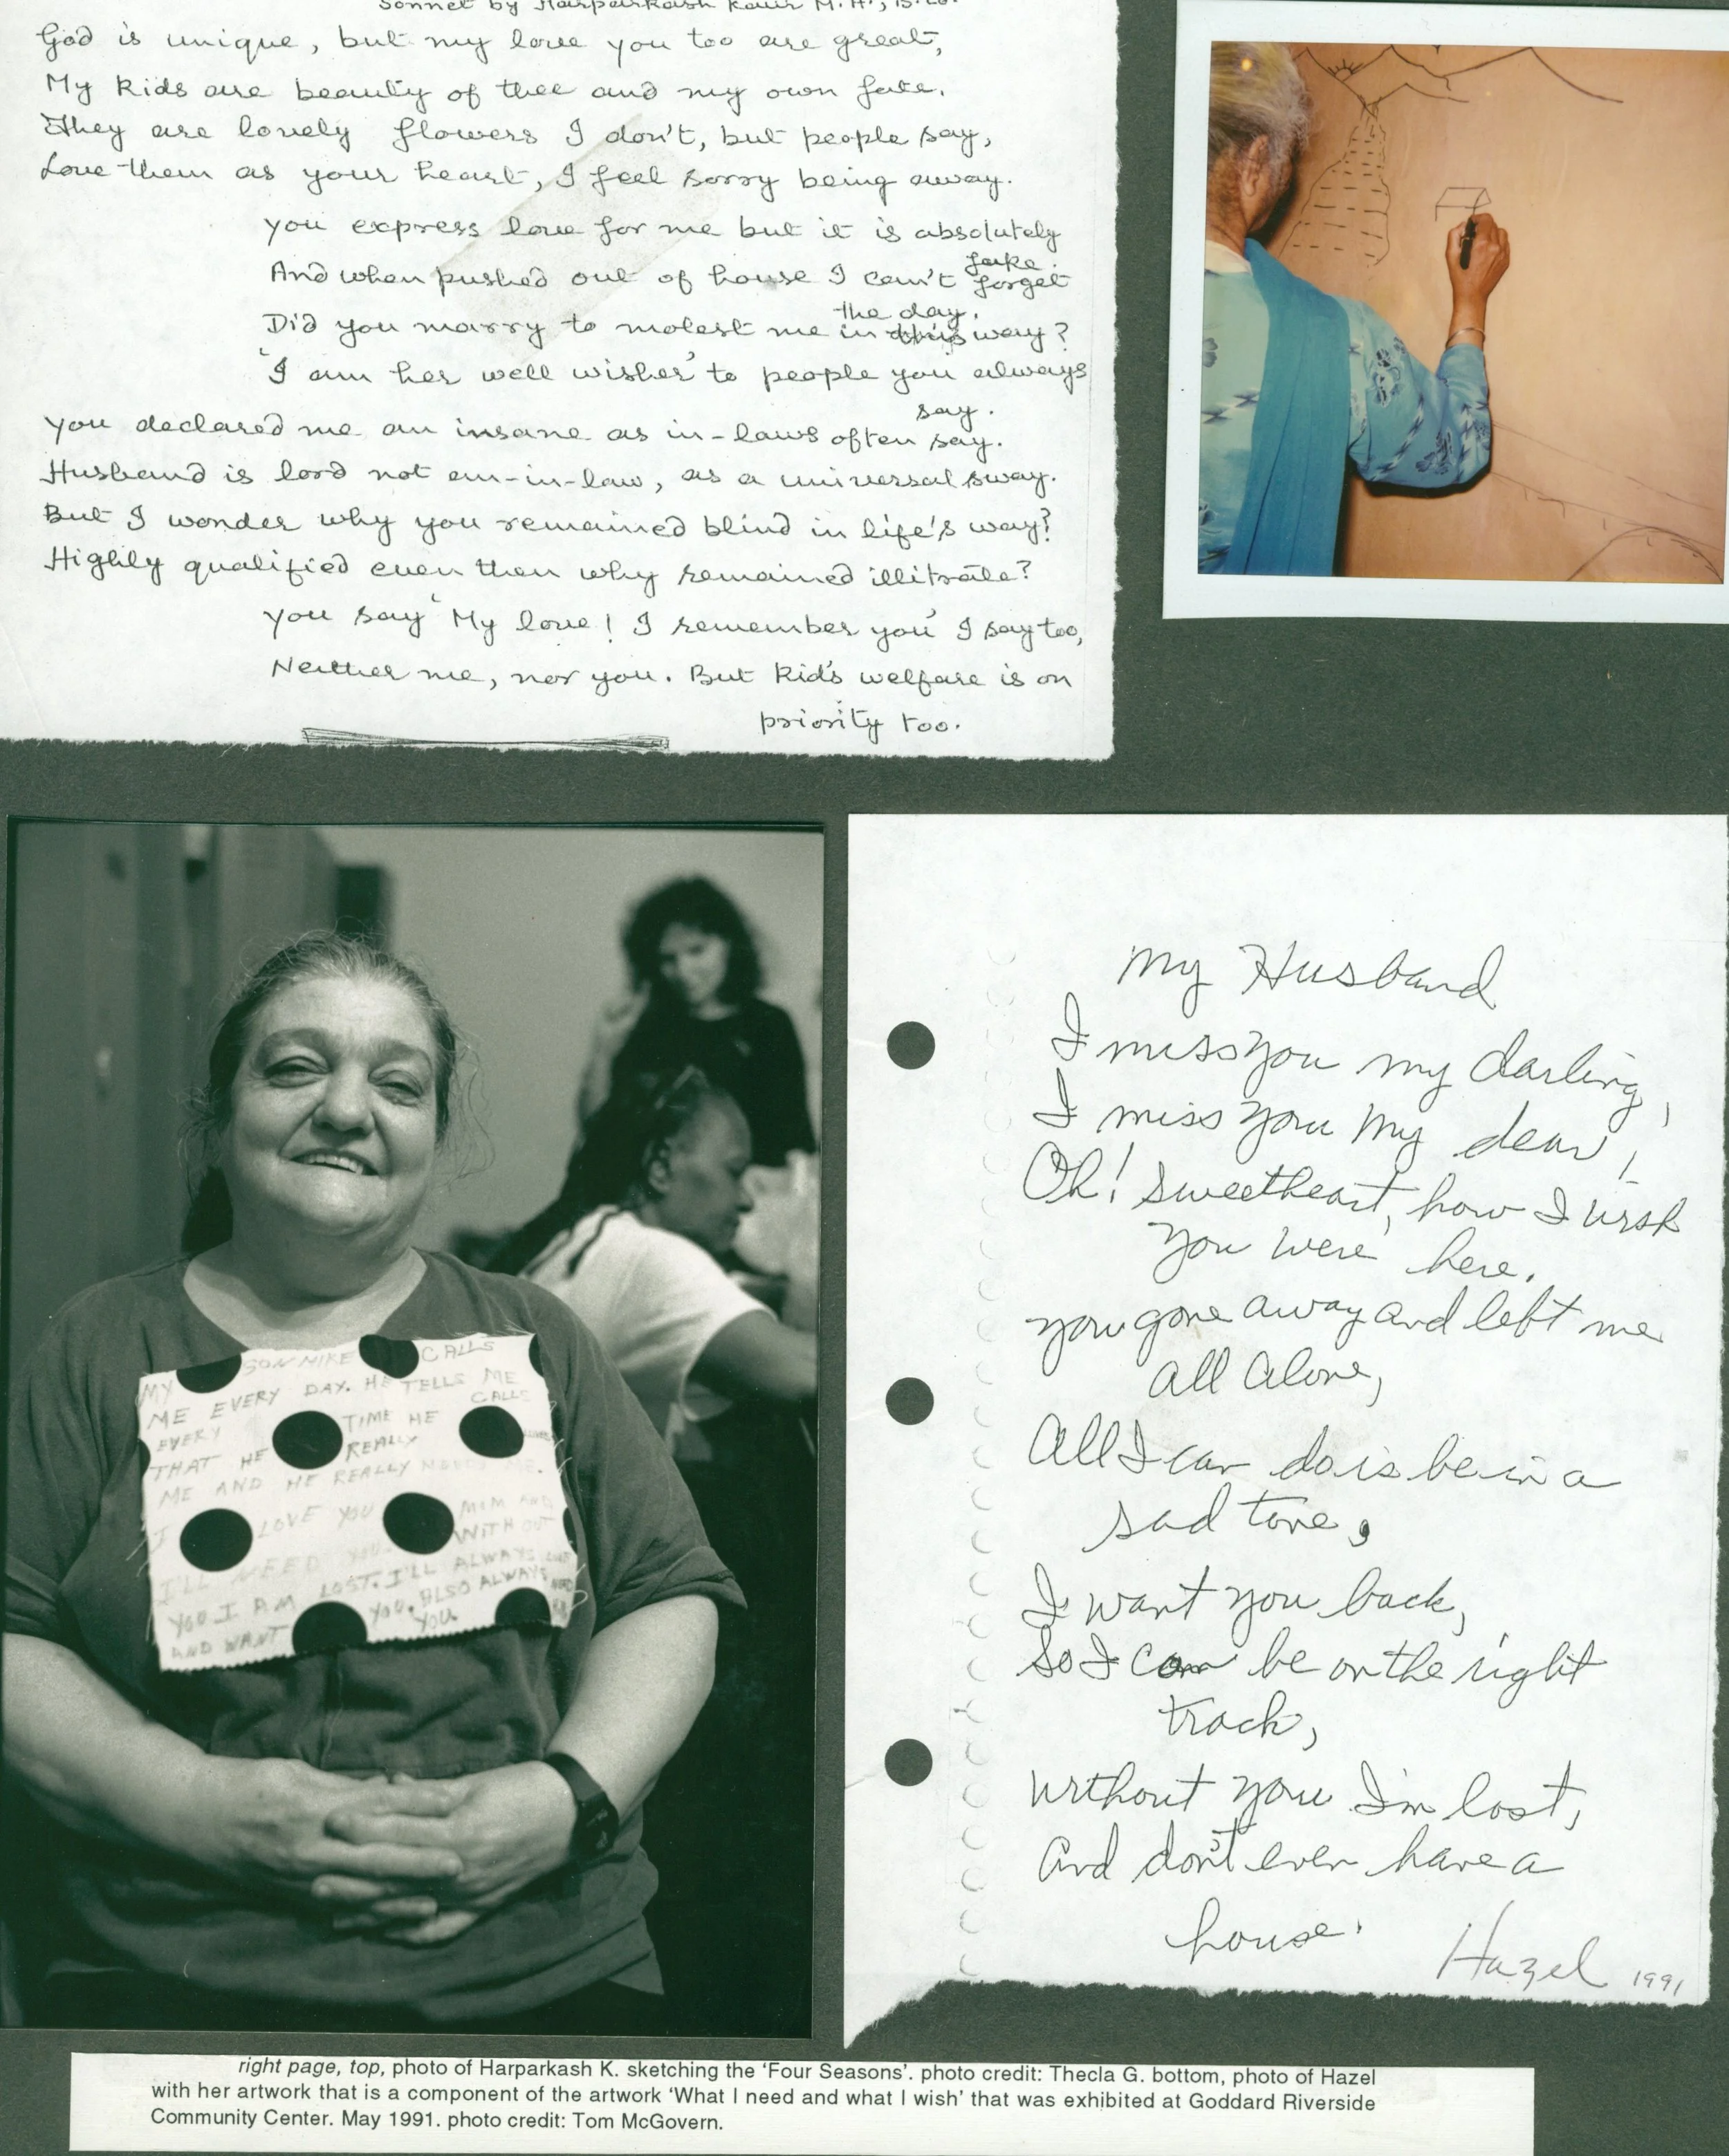 Sonnet by Harparkash Kaur M.A., B.Ed.
God is unique, but my love you too are great,
My kids are beauty of thee and my own fate.
They are lovely flowers I don't, but people say,
Love them as your heart, I feel sorry being away.
You express love for me but it is absolutely
fake.
And when pushed out of house I can't forget
the day.
Did you marry to molest me in this way?
'I am her well wisher' to people you always
say.
You declared me an insane as in-laws often say.
Husband is lord not an-in-law, as a universal sway.
But I wonder why you remained blind in life's way?
Highly qualified even then why remained illitrate?
You say 'My love! I remember you' I say too,
Neither me, nor you. But kid's welfare is on
priority too.
MY SON MIKE CALLS
ME EVERY DAY. HE TELLS ME
EVERY TIME HE CALLS
THAT HE REALLY
ME AND HE REALLY NEEDS ME.
I LOVE YOU MOM AND
I'LL NEED YOU. WITHOUT
YOU I AM LOST. I'LL ALWAYS LOVE
YOU. ALSO ALWAYS NEED
AND WANT YOU.
My Husband
I miss you my darling,
I miss you my dear,
Oh! Sweetheart, how I wish
you were here.
you gone away and left me
all alone,
All I can do is be in a
sad tone,
I want you back,
So I can be on the right
track,
without you I'm lost,
And don't even have a
house.
Hazel 1991
right page, top, photo of Harparkash K. sketching the 'Four Seasons'. photo credit: Thecla G. bottom, photo of Hazel
with her artwork that is a component of the artwork 'What I need and what I wish' that was exhibited at Goddard Riverside
Community Center. May 1991. photo credit: Tom McGovern.